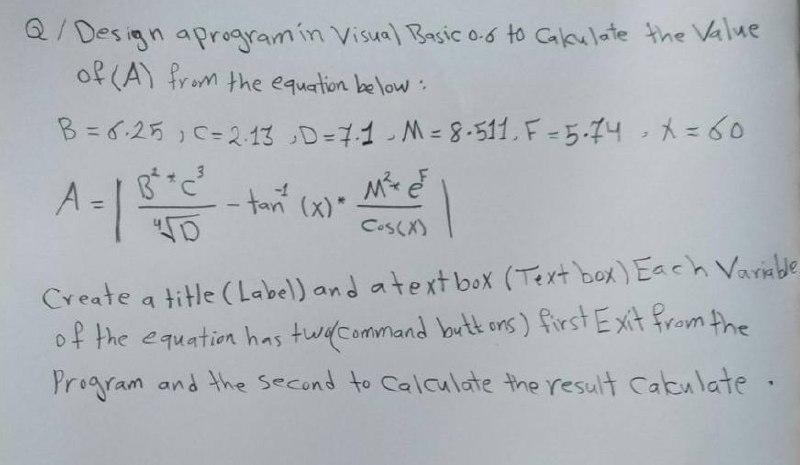 Q / Design a program in Visual Basic 0.6 to Calculate the Value
of (A) from the equation below :
B = 6.25 , C = 2.13 , D = 7.1 , M = 8.511 , F = 5.74 , X = 60
A = | B² * C³ / ⁴√D - tan⁻¹ (x) * M² * e^F / Cos(x) |
Create a title (Label) and a text box (Text box) Each Variable
of the equation has two (Command buttons) first Exit from the
Program and the Second to Calculate the result Calculate .